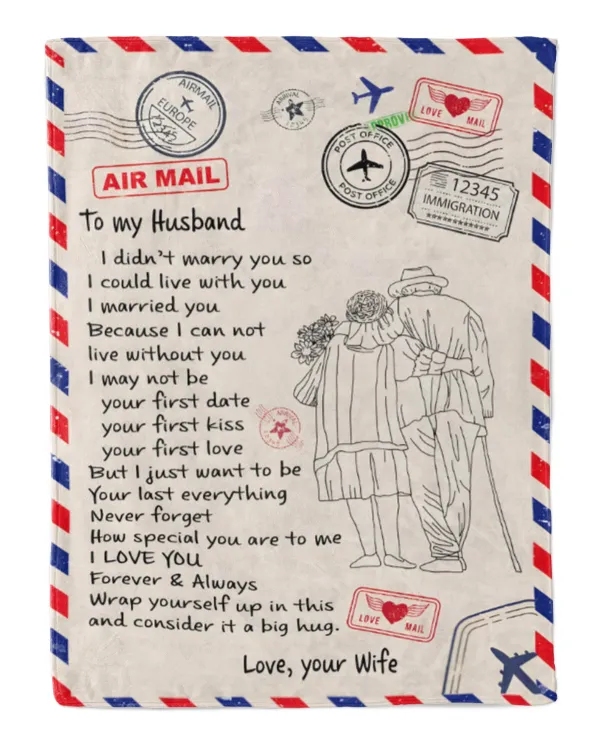 AIRMAIL
EUROPE
ARRIVAL
LOVE MAIL
POST OFFICE
POST OFFICE
12345
IMMIGRATION
AIR MAIL
To my Husband
I didn't marry you so
I could live with you
I married you
Because I can not
live without you
I may not be
your first date
your first kiss
your first love
But I just want to be
Your last everything
Never forget
How special you are to me
I LOVE YOU
Forever & Always
Wrap yourself up in this
and consider it a big hug.
LOVE MAIL
Love, your Wife